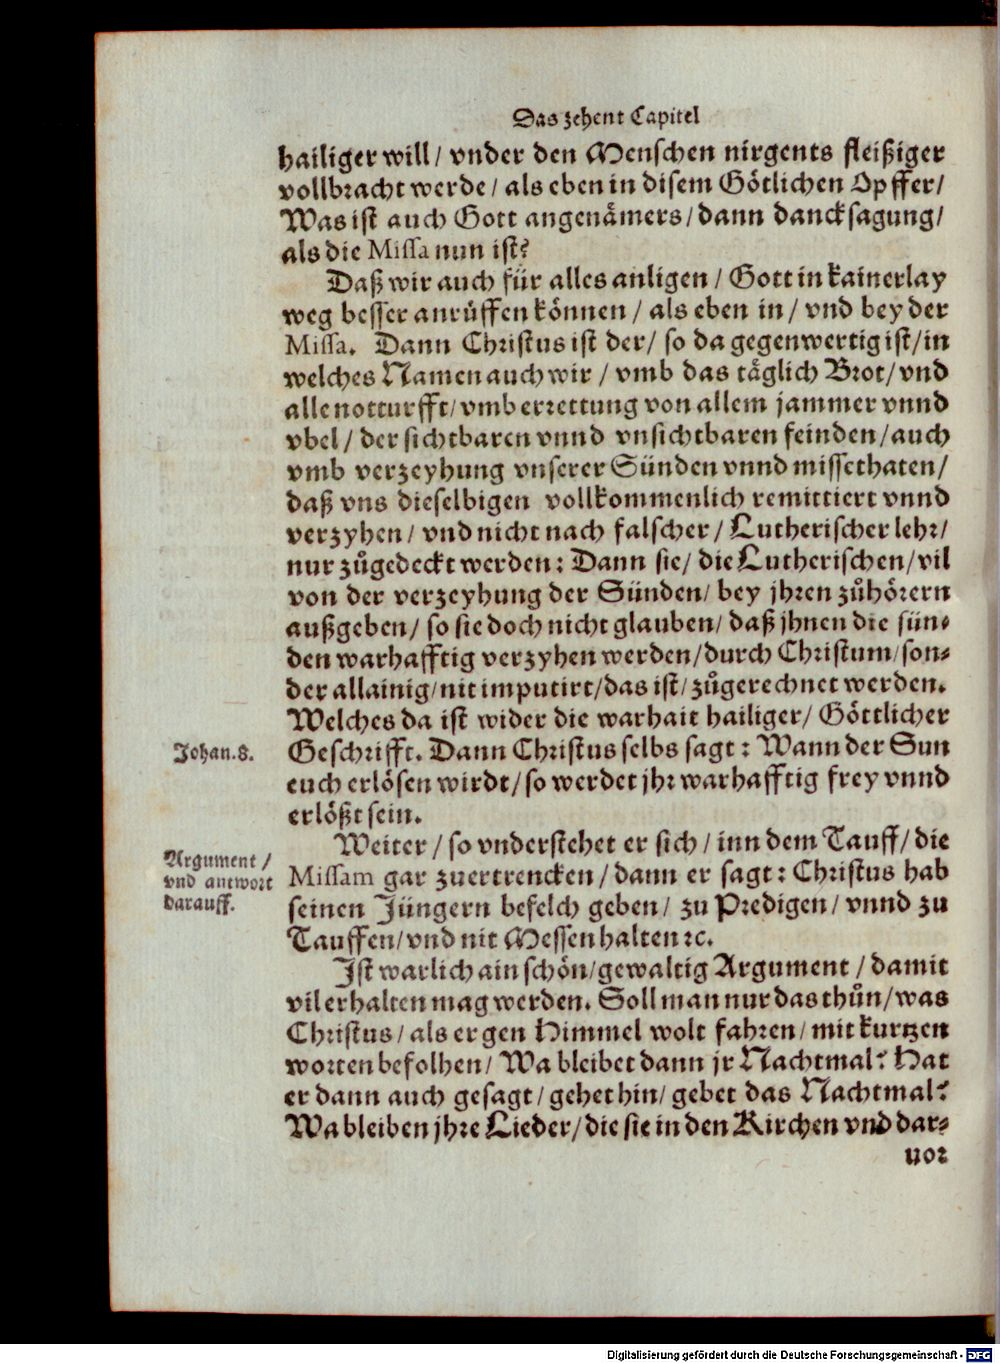 Das zehent Capitel
hailiger will/ vnder den Menschen nirgents fleißiger
vollbracht werde/ als eben in disem Götlichen Opffer/
Was ist auch Gott angenämers/ dann dancksagung/
als die Missa nun ist?
Daß wir auch für alles anligen/ Gott in kainerlay
weg besser anrůffen können/ als eben in/ vnd bey der
Missa. Dann Christus ist der/ so da gegenwertig ist/ in
welches Namen auch wir/ vmb das täglich Brot/ vnd
alle notturfft/ vmb errettung von allem jammer vnnd
vbel/ der sichtbaren vnnd vnsichtbaren feinden/ auch
vmb verzeyhung vnserer Sünden vnnd missethaten/
daß vns dieselbigen vollkommenlich remittiert vnnd
verzyhen/ vnd nicht nach falscher/ Lutherischer lehr/
nur zůgedeckt werden: Dann sie/ die Lutherischen/ vil
von der verzeyhung der Sünden/ bey jhren zůhörern
außgeben/ so sie doch nicht glauben/ daß jhnen die sün-
den warhafftig verzyhen werden/ durch Christum/ son-
der allainig/ nit imputirt/ das ist/ zůgerechnet werden.
Welches da ist wider die warhait hailiger/ Göttlicher
Johan. 8.
Geschrifft. Dann Christus selbs sagt: Wann der Sun
euch erlösen wirdt/ so werdet jhr warhafftig frey vnnd
erlößt sein.
Weiter/ so vnderstehet er sich/ inn dem Tauff/ die
Argument/
vnd antwort
darauff.
Missam gar zuertrencken/ dann er sagt: Christus hab
seinen Jüngern befelch geben/ zu Predigen/ vnnd zu
Tauffen/ vnd nit Messen halten ꝛc.
Ist warlich ain schön/ gewaltig Argument/ damit
vil erhalten mag werden. Soll man nur das thůn/ was
Christus/ als er gen Himmel wolt fahren/ mit kurtzen
worten befolhen/ Wa bleibet dann jr Nachtmal? Hat
er dann auch gesagt/ gehet hin/ gebet das Nachtmal?
Wa bleiben jhre Lieder/ die sie in den Kirchen vnd dar-
uor
Digitalisierung gefördert durch die Deutsche Forschungsgemeinschaft - DFG